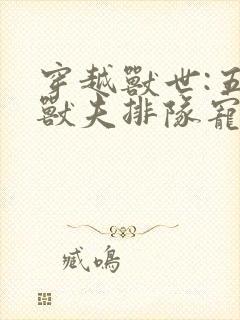 穿越獸世:五
獸夫排隊寵
臧鳴